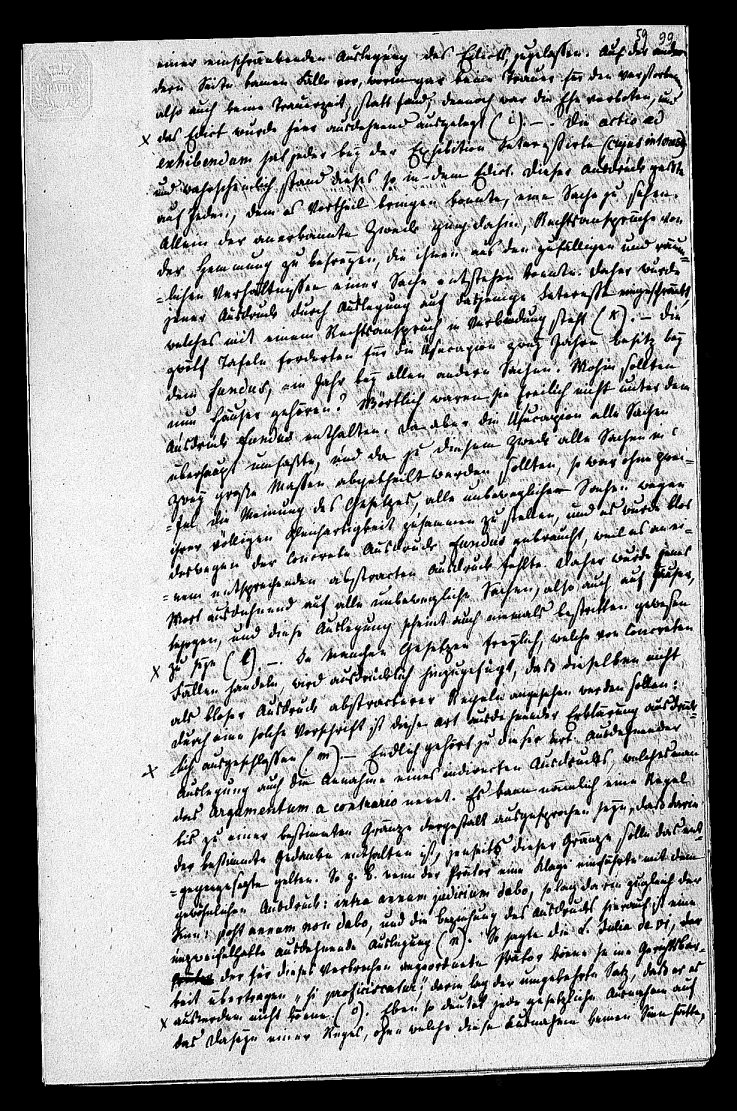 59 99
einer einschränkenden Auslegung des Edicts zugelassen. Auf der andern
dern Seite kamen Fälle vor, worin gar keine Trauer für den verstorbenen
also auch keine Trauerzeit, statt fand; dennoch war die Ehe verboten, und
das Edict wurde hier ausdehnend ausgelegt (i). – Die actio ad
exhibendum hat jeder bey der Exhibition Interessirte (cujus interest)
und wahrscheinlich stand dieses so in dem Edict. Dieser Ausdruck paßte
auf Jeden, dem es Vortheil bringen konnte, eine Sache zu sehen.
Allein der anerkannte Zweck ging dahin, Rechtsansprüche von
der Hemmung zu befreyen, die ihnen aus den zufälligen und räum-
-lichen Verhältnissen einer Sache entstehen konnte. Daher wurde
jener Ausdruck durch Auslegung auf dasjenige Interesse eingeschränkt,
welches mit einem Rechtsanspruch in Verbindung steht (k). – Die
zwölf Tafeln forderten für die Usucapion zwey Jahre Besitz bey
dem fundus, ein Jahr bey allen andern Sachen. Wohin sollten
nun Häuser gehören? Wörtlich waren sie freilich nicht unter dem
Ausdruck fundus enthalten. Da aber die Usucapion alle Sachen
überhaupt umfaßte, und da zu diesem Zweck alle Sachen in
zwey große Massen abgetheilt werden sollten, so war ohne Zwei-
-fel die Meinung des Gesetzes, alle unbeweglichen Sachen wegen
ihrer völligen Gleichartigkeit zusammen zu stellen, und es wurde blos
deswegen der concrete Ausdruck fundus gebraucht, weil es an ei-
-nem entsprechenden abstracten Ausdruck fehlte. Daher wurde jenes
Wort ausdehnend auf alle unbewegliche Sachen, also auch auf Häuser,
bezogen, und diese Auslegung scheint auch niemals bestritten gewesen
zu seyn (l). – In manchen Gesetzen freylich, welche von concreten
Fällen handeln, wird ausdrücklich hinzugefügt, daß dieselben nicht
als bloser Ausdruck abstracterer Regeln angesehen werden sollen:
durch eine solche Vorschrift ist diese Art ausdehnender Erklärung ausdrück-
lich ausgeschlossen (m). – Endlich gehört zu dieser Art ausdehnender
Auslegung auch die Annahme eines indirecten Ausdrucks, welches man
das Argumentum a contrario nennt. Es kann nämlich eine Regel
bis zu einer bestimmten Gränze dergestalt ausgesprochen seyn, daß darin
der bestimmte Gedanke enthalten ist, jenseits dieser Gränze solle das ent-
-gegengesetzte gelten. So z. B. wenn der Prätor eine Klage einführte mit dem
gewöhnlichen Ausdruck: intra annum judicium dabo, so lag darin zugleich der
Sinn: post annum non dabo, und die Beziehung des Ausdrucks hierauf ist eine
unzweifelhafte ausdehnende Auslegung (n). So sagte die L. Julia de vi, der
der für dieses Verbrechen angeordnete Prätor könne seine Gerichtsbar-
keit übertragen, si proficiscatur; darin lag der umgekehrte Satz, daß er es
außerdem nicht könne (o). Eben so deutet jede gesetzliche Ausnahme auf
das Daseyn einer Regel, ohne welche diese Ausnahme keinen Sinn hätte,